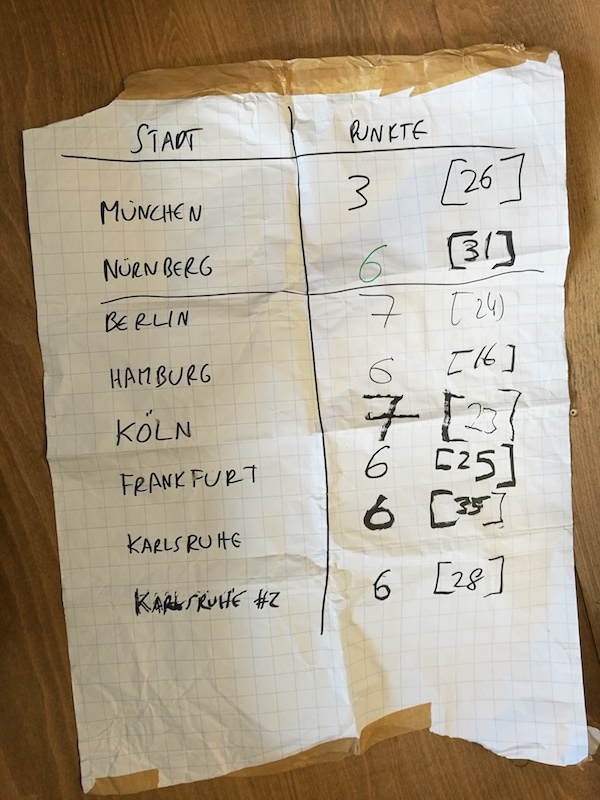 STADT PUNKTE
MÜNCHEN 3 [26]
NÜRNBERG 6 [31]
BERLIN 7 [24)
HAMBURG 6 [16]
KÖLN 7 [23]
FRANKFURT 6 [25]
KARLSRUHE 6 [35]
KARLSRUHE #2 6 [28]